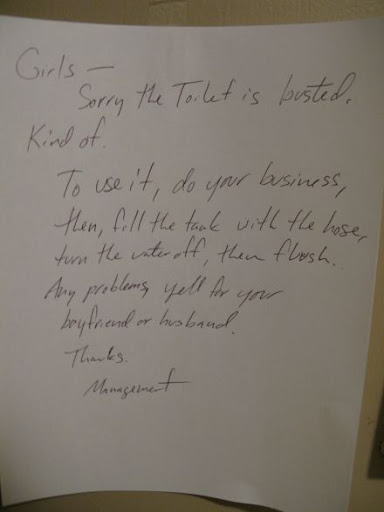 Girls —
Sorry the Toilet is busted.
Kind of.
To use it, do your business,
then, fill the tank with the hose,
turn the water off, then flush.
Any problems, yell for your
boyfriend or husband.
Thanks.
Management